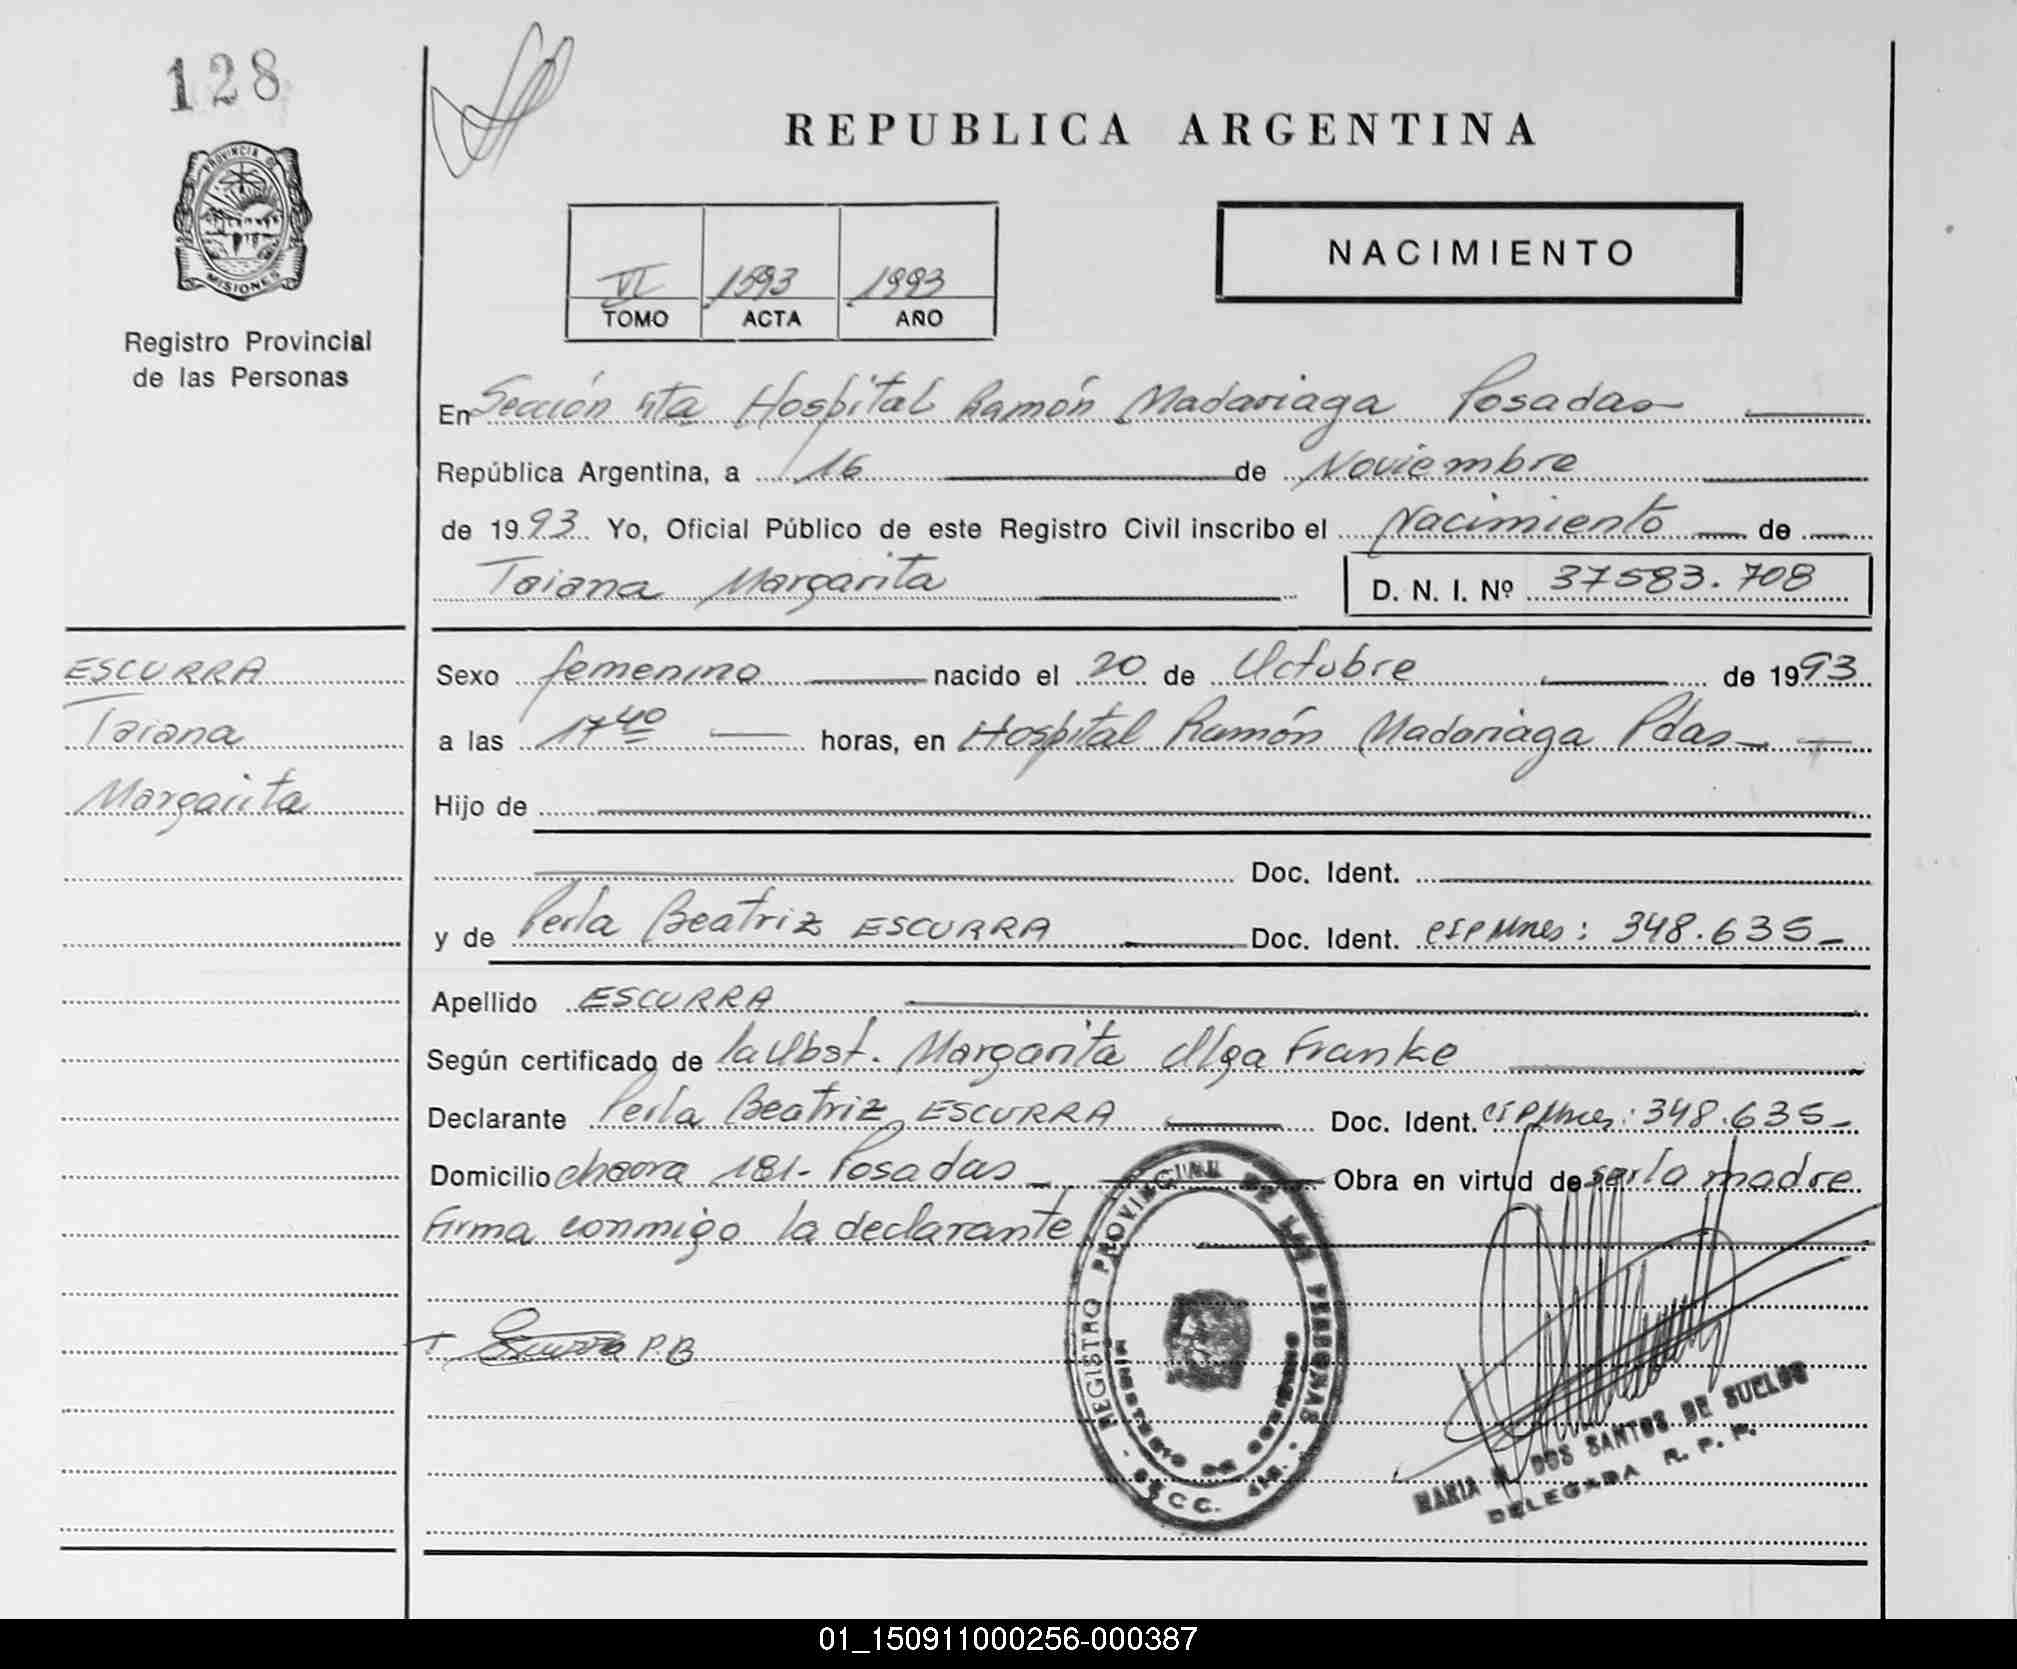 128
PROVINCIA D
MISIONES
Registro Provincial
de las Personas
REPUBLICA ARGENTINA
VI 1593 1993
TOMO ACTA AÑO
NACIMIENTO
En Sección 4ta Hospital Ramón Madariaga Posadas
República Argentina, a 16 de Noviembre
de 1993. Yo, Oficial Público de este Registro Civil inscribo el Nacimiento de
Taiana Margarita D. N. I. Nº 37583.708
ESCURRA
Taiana
Margarita
Sexo femenino nacido el 20 de Octubre de 1993
a las 17 40 horas, en Hospital Ramón Madariaga Pdas
Hijo de
Doc. Ident.
y de Perla Beatriz ESCURRA Doc. Ident. : 348.635
Apellido ESCURRA
Según certificado de la Obst. Margarita Olga Franke
Declarante Perla Beatriz ESCURRA Doc. Ident. : 348.635
Domicilio chacra 181- Posadas Obra en virtud de ser la madre
Firma conmigo la declarante
Escurra P.B
REGISTRO PROVINCIAL DE LAS PERSONAS
MINISTERIO DE GOBIERNO
SECC. 4ta.
MARIA DOS SANTOS DE SUELOS
DELEGADA R. P. P.
01_150911000256-000387